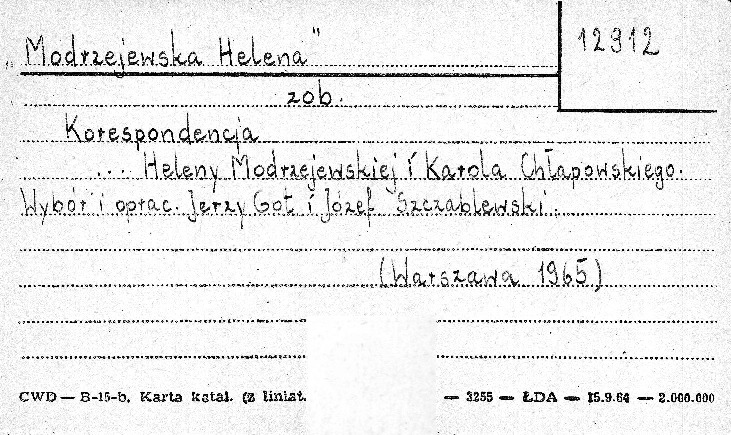 „Modrzejewska Helena"
12912
zob.
Korespondencja
... Heleny Modrzejewskiej i Karola Chłapowskiego.
Wybór i oprac. Jerzy Got i Józef Szczablewski.
(Warszawa 1965)
CWD — B-15-b. Karta katal. (z liniat. — 3255 — ŁDA — 15.9.64 — 2.000.000